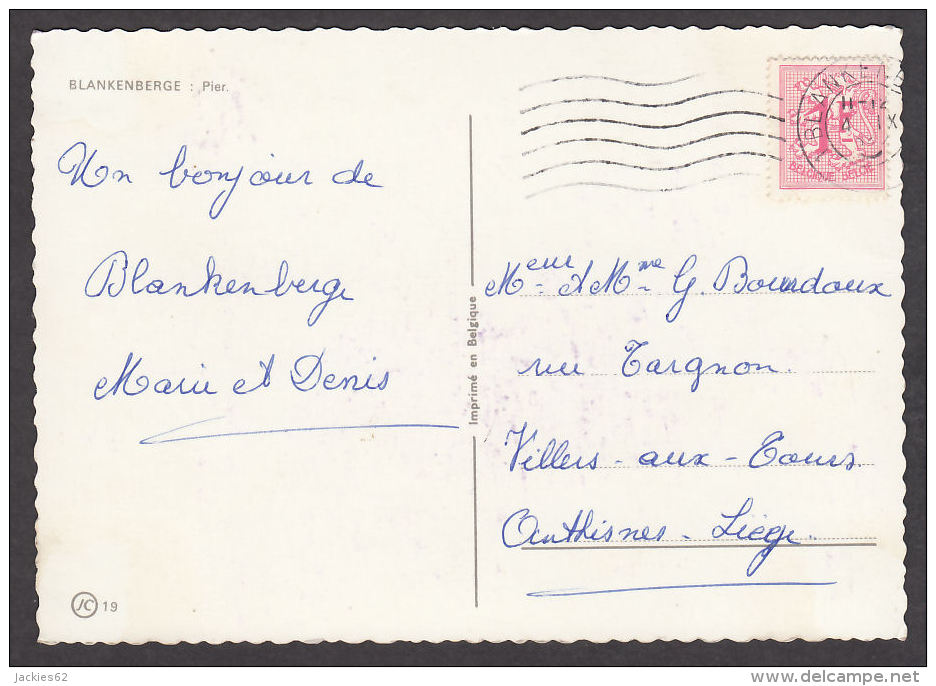 BLANKENBERGE : Pier.
Un bonjour de
Blankenberge
Marie et Denis
Imprimé en Belgique
BELGIQUE BELGIE
Meur et Mme G. Bourdoux
rue Targnon.
Villers-aux-Tours
Anthisnes - Liège.
JC 19
jackies62
www.delcampe.net